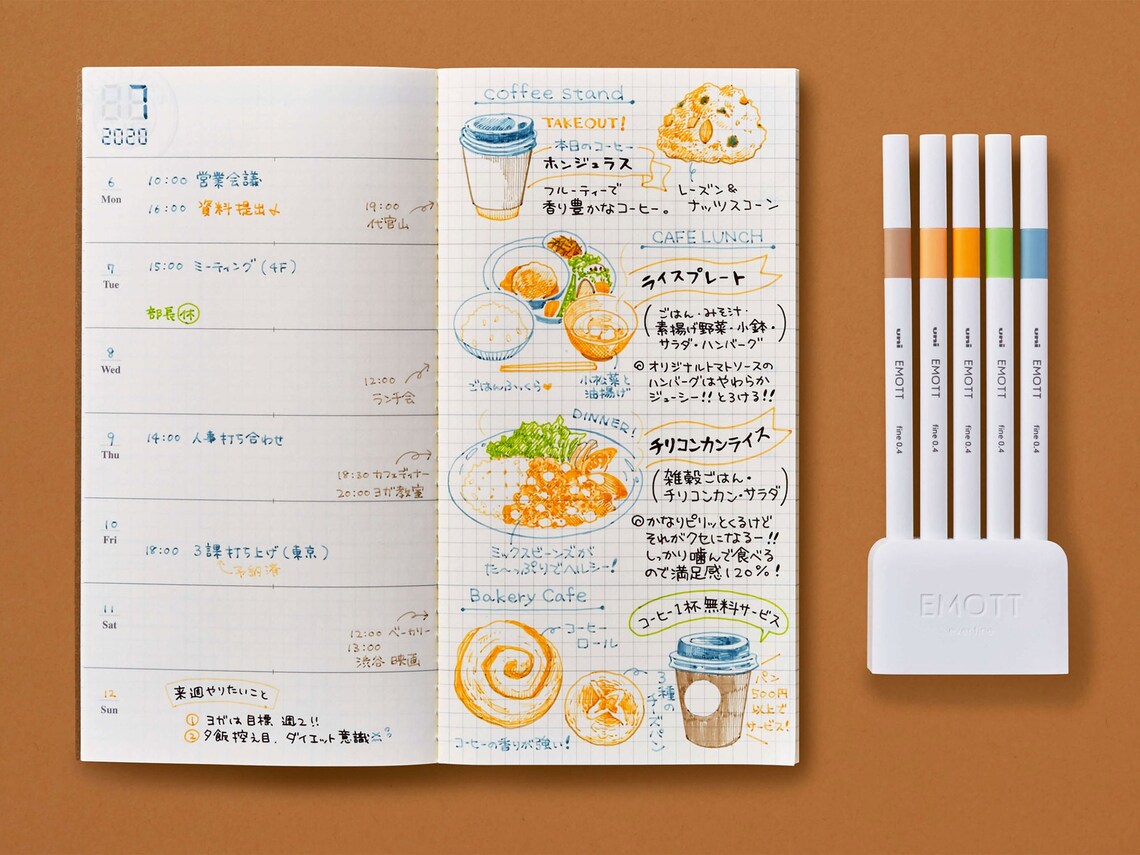 7
2020
6
Mon
10:00 営業会議
16:00 資料提出
19:00
代官山
7
Tue
15:00 ミーティング(4F)
部長 休
8
Wed
12:00
ランチ会
9
Thu
14:00 人事打ち合わせ
18:30 カフェディナー
20:00 ヨガ教室
10
Fri
18:00 3課打ち上げ(東京)
11
Sat
12:00 ベーカリー
13:00
渋谷 映画
12
Sun
来週やりたいこと
① ヨガは目標 週2!!
② 夕飯控え目、ダイエット意識
coffee stand
TAKEOUT!
本日のコーヒー
ホンジュラス
フルーティーで
香り豊かなコーヒー。
レーズン&
ナッツスコーン
CAFE LUNCH
ライスプレート
(ごはん・みそ汁・
素揚げ野菜・小鉢・
サラダ・ハンバーグ)
◎オリジナルトマトソースの
ハンバーグはやわらか
ジューシー!!とろける!!
ごはんふっくら
小松菜と
油揚げ
DINNER!
チリコンカンライス
(雑穀ごはん・
チリコンカン・サラダ)
◎かなりピリッとくるけど
それがクセになるー!!
しっかり噛んで食べる
ので満足感120%!
ミックスビーンズが
た〜っぷりでヘルシー!
Bakery Cafe
コーヒー
ロール
コーヒーの香りが強い!
3種の
チーズパン
コーヒー1杯無料サービス
パン
500円
以上で
サービス!
uni EMOTT fine 0.4
uni EMOTT fine 0.4
uni EMOTT fine 0.4
uni EMOTT fine 0.4
uni EMOTT fine 0.4
EMOTT